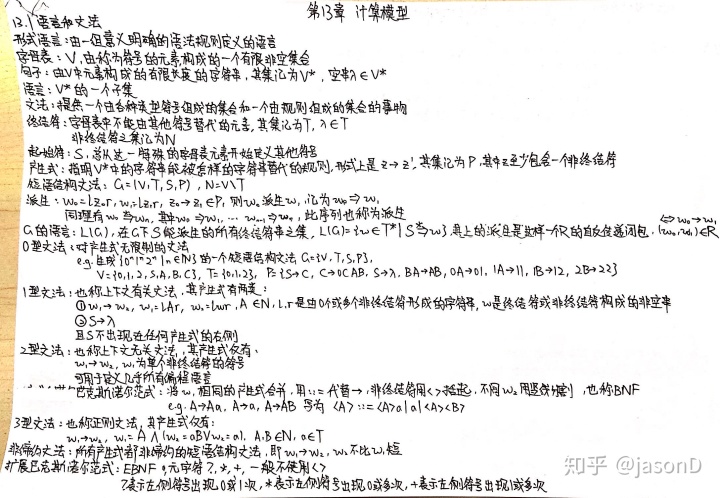 第13章 计算模型
13.1 语言和文法
形式语言:由一组意义明确的语法规则定义的语言
字母表:V,由称为符号的元素构成的一个有限非空集合
句子:由V中元素构成的有限长度的字符串,其集记为V*,空串λ∈V*
语言:V*的一个子集
文法:提供一个由各种类型符号组成的集合和一个由规则组成的集合的事物
终结符:字母表中不能由其他符号替代的元素,其集记为T,λ∈T
非终结符之集记为N
起始符:S,总从这一特殊的字母表元素开始定义其他符号
产生式:指明V*中的字符串能被怎样的字符串替代的规则,形式上是z→z',其集记为P,其中z至少包含一个非终结符
短语结构文法:G=(V,T,S,P),N=V\T
派生:w₀=Lz₀r,w₁=Lz₁r,z₀→z₁∈P,则w₀派生w₁,记为w₀⇒w₁
同理有w₀⇒wₙ,其中w₀⇒w₁,…wₙ₋₁⇒wₙ,此序列也称为派生
G的语言:L(G),在G下S能派生的所有终结符串之集,L(G)={w∈T*|S⇒w},其上的派生是这样一个R的自反传递闭包,(w₀,w₁)∈R⇔w₀→w₁
0型文法:对产生式无限制的文法
e.g.生成{0ⁿ1ⁿ2ⁿ|n∈N}的一个短语结构文法G={V,T,S,P},
V={0,1,2,S,A,B,C},T={0,1,2},P={S→C,C→0CAB,S→λ,BA→AB,0A→01,1A→11,1B→12,2B→22}
1型文法:也称上下文有关文法,其产生式有两类:
①w₁→w₂,w₁=LAr,w₂=Lwr,A∈N,L,r是由0个或多个非终结符形成的字符串,w是终结符或非终结符构成的非空串
②S→λ
且S不出现在任何产生式的右侧
2型文法:也称上下文无关文法,其产生式仅有:
w₁→w₂,w₁为单个非终结符的符号
可用于定义几乎所有编程语言
巴克斯诺尔范式:将w₁相同的产生式合并,用::=代替→,非终结符用<>括起,不同w₂用竖线分割,也称BNF
e.g.A→Aa,A→a,A→AB 写为 <A>::=<A>a|a|<A><B>
3型文法:也称正则文法,其产生式仅有:
w₁→w₂,w₁=A∧(w₂=aB∨w₂=a),A,B∈N,a∈T
非缩约文法:所有产生式都非缩约的短语结构文法,即w₁→w₂,w₂不比w₁短
扩展巴克斯诺尔范式:EBNF,元字符?,*,+,一般不使用<>
?表示左侧符号出现0或1次,*表示左侧符号出现0或多次,+表示左侧符号出现1或多次
知乎 @jasonD